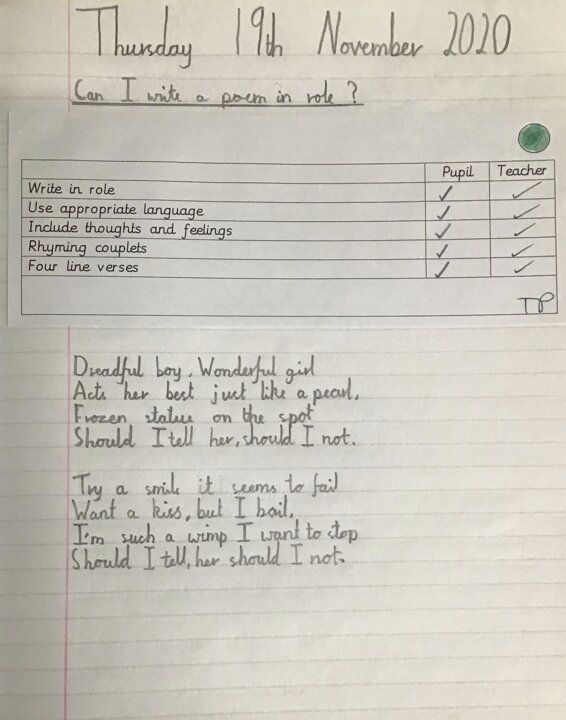 Thursday 19th November 2020
Can I write a poem in role?
Pupil Teacher
Write in role ✓ ✓
Use appropriate language ✓ ✓
Include thoughts and feelings ✓ ✓
Rhyming couplets ✓ ✓
Four line verses ✓ ✓
TP
Dreadful boy, Wonderful girl
Acts her best just like a pearl,
Frozen statue on the spot
Should I tell her, should I not.
Try a smile it seems to fail
Want a kiss, but I bail.
I'm such a wimp I want to stop
Should I tell, her should I not.